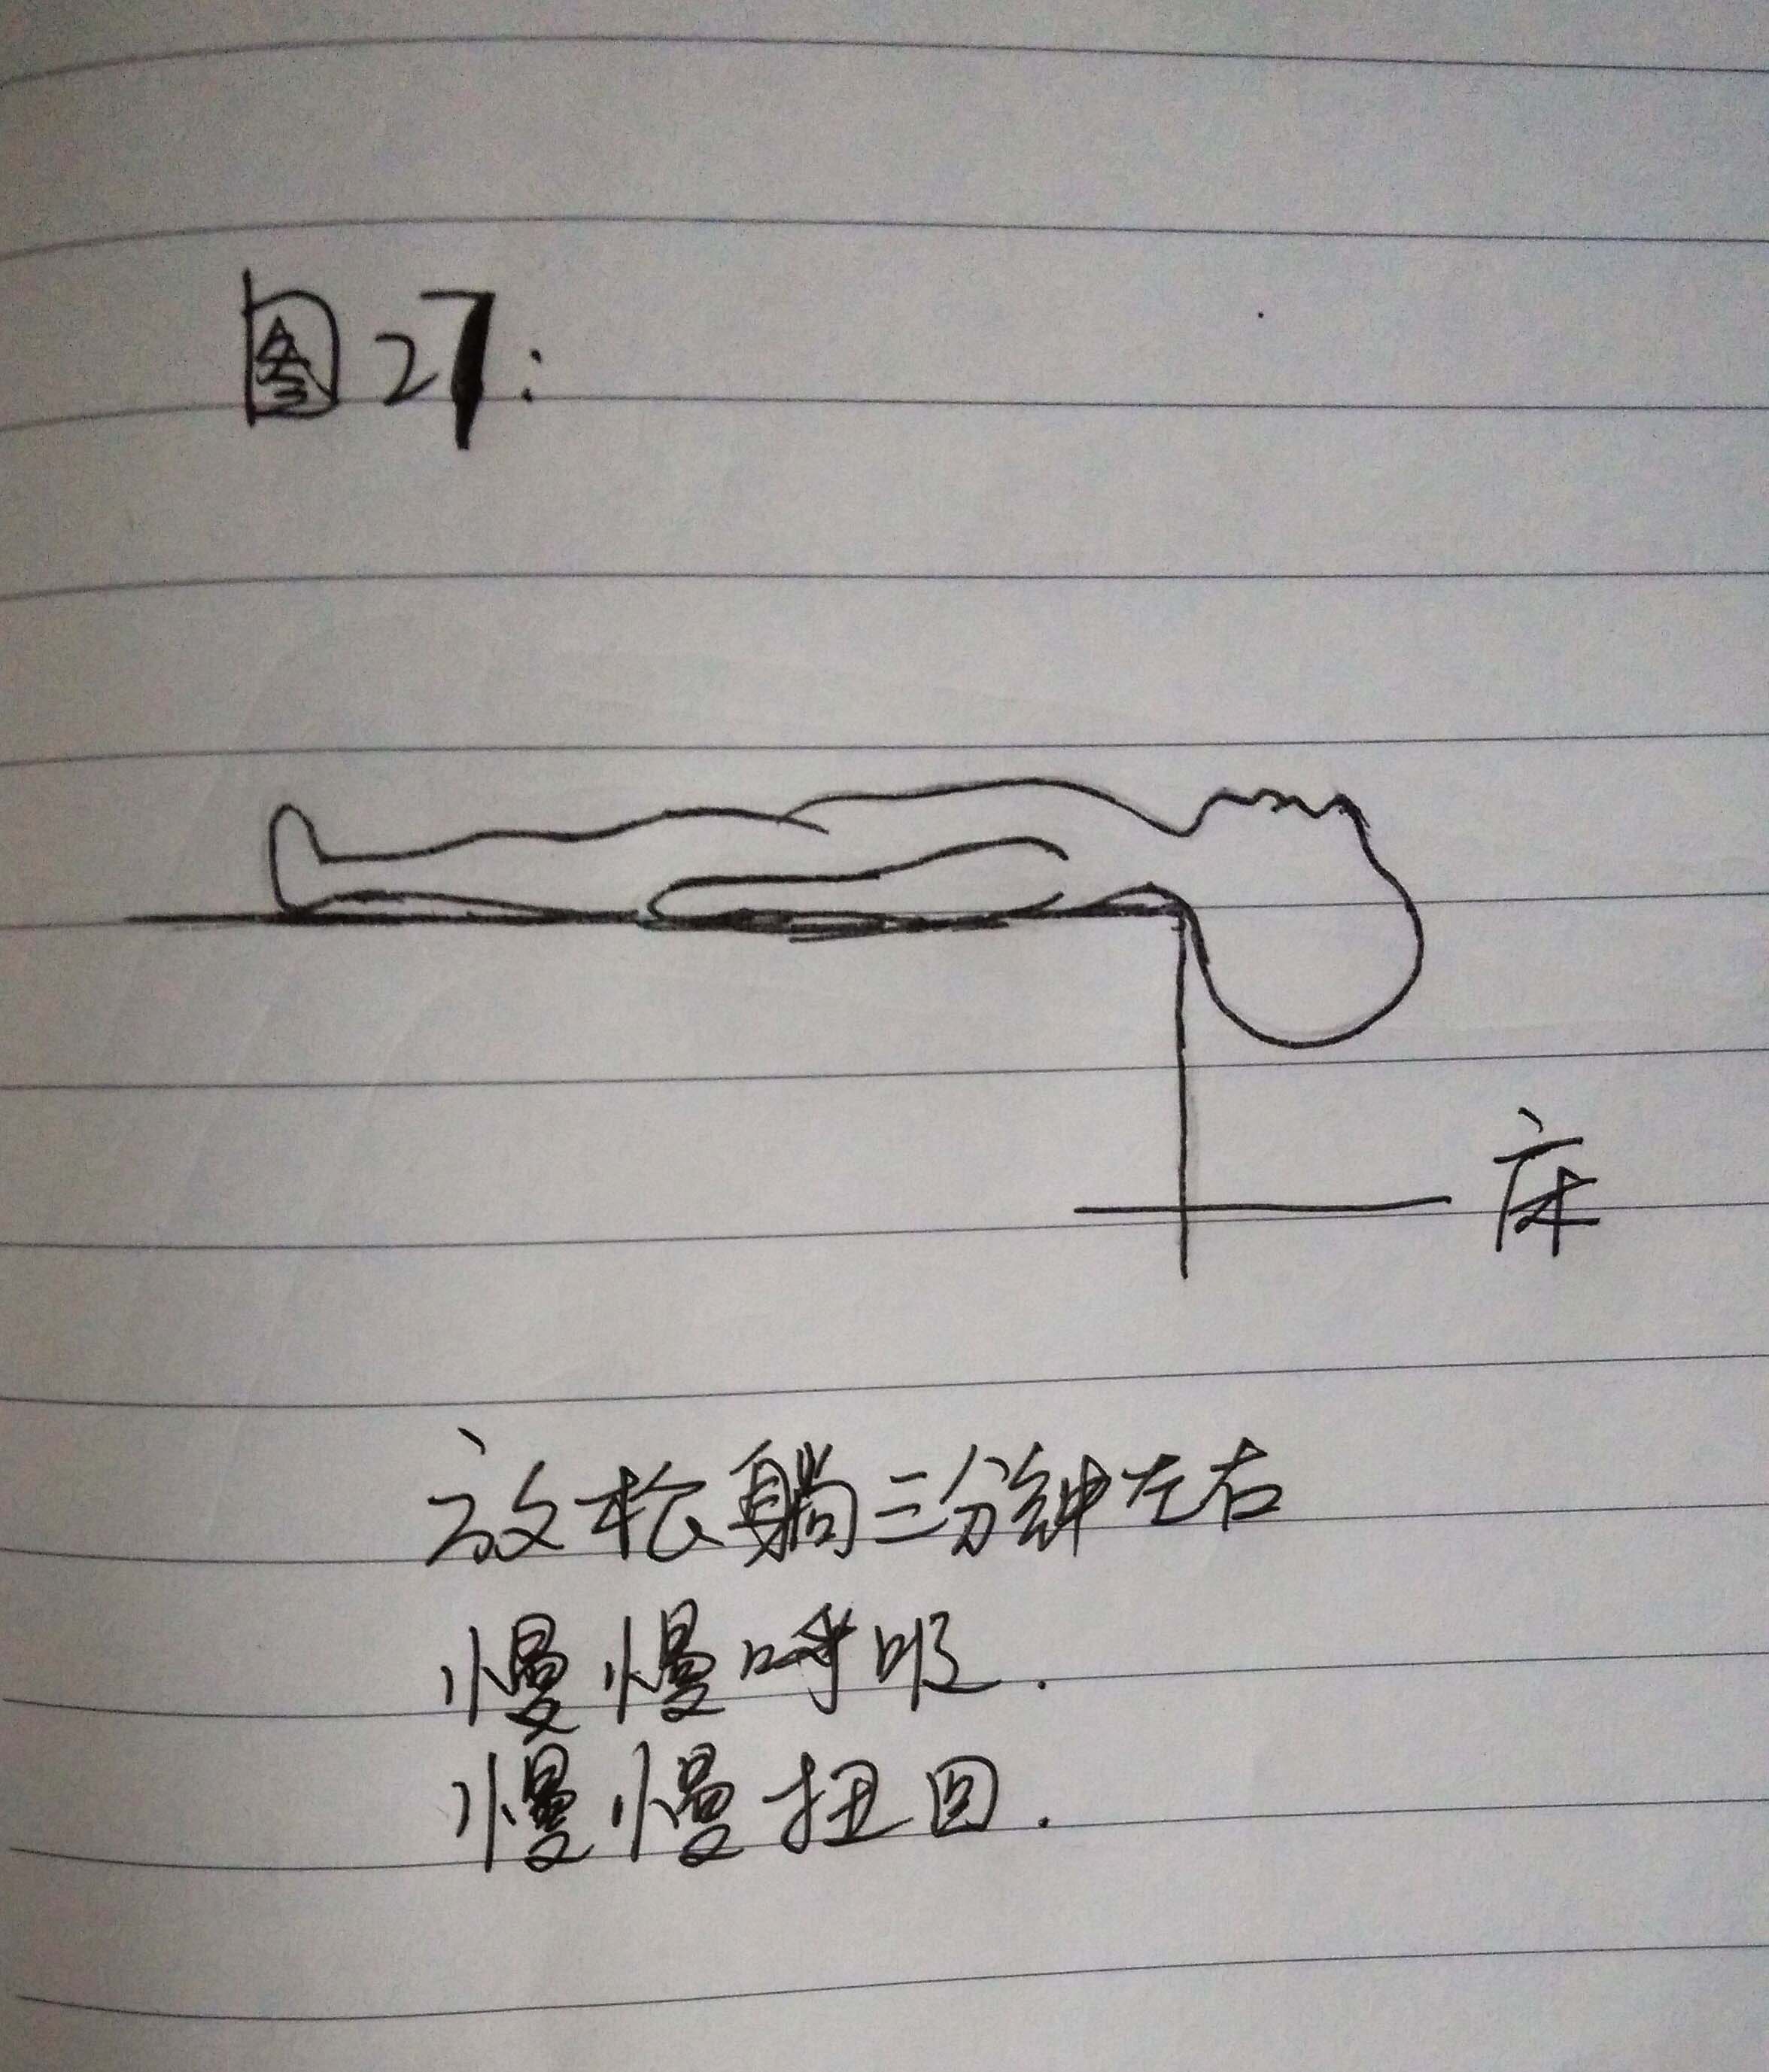 图27:
床
放松躺三分钟左右
慢慢呼吸.
慢慢扭回.